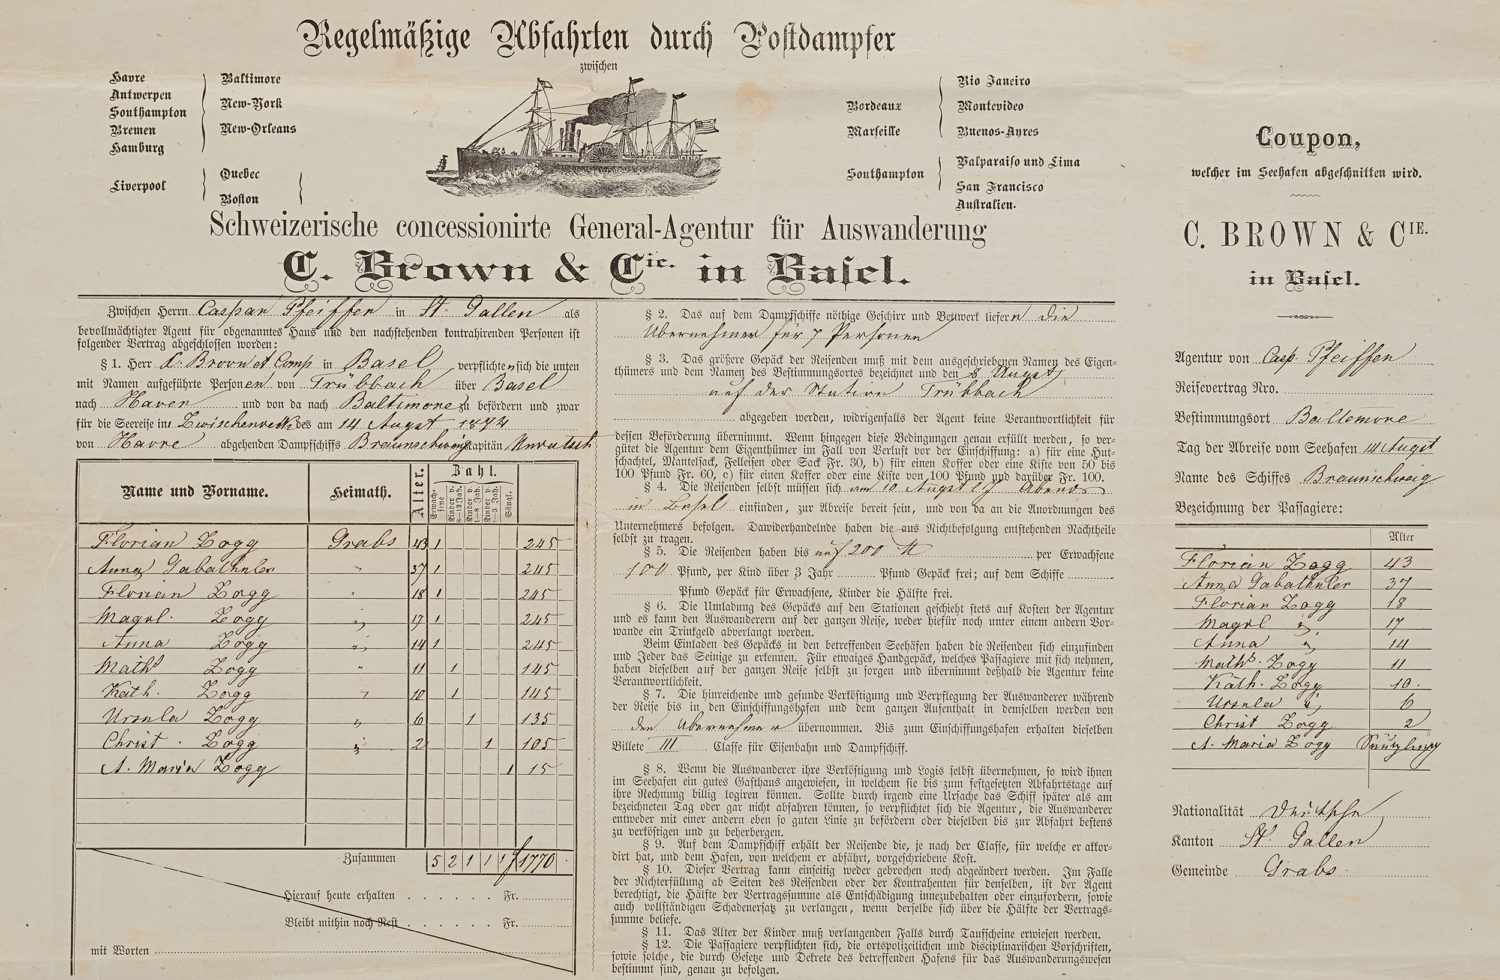 Regelmäßige Abfahrten durch Postdampfer
zwischen
Havre
Antwerpen
Southampton
Bremen
Hamburg
Baltimore
New-York
New-Orleans
Liverpool
Quebec
Boston
Bordeaux
Marseille
Rio Janeiro
Montevideo
Buenos-Ayres
Southampton
Valparaiso und Lima
San Francisco
Australien.
Schweizerische concessionirte General-Agentur für Auswanderung
C. Brown & Cie. in Basel.
Zwischen Herrn Caspar Pfeiffer in St. Gallen als
bevollmächtigter Agent für obgenanntes Haus und den nachstehenden kontrahirenden Personen ist
folgender Vertrag abgeschlossen worden:
§ 1. Herr C. Brown et Comp in Basel verpflichten sich die unten
mit Namen aufgeführte Personen von Trübbach über Basel
nach Haver und von da nach Baltimore zu befördern und zwar
für die Seereise im Zwischendeck des am 14. Augst 1874
von Havre abgehenden Dampfschiffs Braunschweig Kapitän
Name und Vorname. Heimath. Alter. Zahl.
Erwachsene Kinder v. 8–12 Jah. Kinder v. 1–8 Jah. Kinder v. 1–3 Jah. Säugl.
Florian Zogg Grabs 43 1 245
Anna Gabathuler " 37 1 245
Florian Zogg " 18 1 245
Magd. Zogg " 17 1 245
Anna Zogg " 14 1 245
Maths Zogg " 11 1 145
Kath. Zogg " 10 1 145
Ursula Zogg " 6 1 135
Christ. Zogg " 2 1 105
A. Maria Zogg 1 15
Zusammen 5 2 1 1 1 f 1770
Hierauf heute erhalten . . . . . . Fr.
Bleibt mithin noch Rest . . . . . . Fr.
mit Worten
§ 2. Das auf dem Dampfschiffe nöthige Geschirr und Bettwerk liefern die
Übernehmer für 7 Personen
§ 3. Das größere Gepäck der Reisenden muß mit dem ausgeschriebenen Namen des Eigen-
thümers und dem Namen des Bestimmungsortes bezeichnet und den 8 Augst
auf der Station Trübbach
abgegeben werden, widrigenfalls der Agent keine Verantwortlichkeit für
dessen Beförderung übernimmt. Wenn hingegen diese Bedingungen genau erfüllt werden, so ver-
gütet die Agentur dem Eigenthümer im Fall von Verlust vor der Einschiffung: a) für eine Hut-
schachtel, Mantelsack, Felleisen oder Sack Fr. 30, b) für einen Koffer oder eine Kiste von 50 bis
100 Pfund Fr. 60, c) für einen Koffer oder eine Kiste von 100 Pfund und darüber Fr. 100.
§ 4. Die Reisenden selbst müssen sich am 10 Augst Abends
in Basel einfinden, zur Abreise bereit sein, und von da an die Anordnungen des
Unternehmers befolgen. Dawiderhandelnde haben die aus Nichtbefolgung entstehenden Nachtheile
selbst zu tragen.
§ 5. Die Reisenden haben bis auf 200 ℔ per Erwachsene
100 Pfund, per Kind über 3 Jahr Pfund Gepäck frei; auf dem Schiffe
Pfund Gepäck für Erwachsene, Kinder die Hälfte frei.
§ 6. Die Umladung des Gepäcks auf den Stationen geschieht stets auf Kosten der Agentur
und es kann den Auswanderern auf der ganzen Reise, weder hiefür noch unter einem andern Vor-
wande ein Trinkgeld abverlangt werden.
Beim Einladen des Gepäcks in den betreffenden Seehäfen haben die Reisenden sich einzufinden
und Jeder das Seinige zu erkennen. Für etwaiges Handgepäck, welches Passagiere mit sich nehmen,
haben dieselben auf der ganzen Reise selbst zu sorgen und übernimmt deßhalb die Agentur keine
Verantwortlichkeit.
§ 7. Die hinreichende und gesunde Verköstigung und Verpflegung der Auswanderer während
der Reise bis in den Einschiffungshafen und dem ganzen Aufenthalt in demselben werden von
den Übernehmer übernommen. Bis zum Einschiffungshafen erhalten dieselben
Billete III Classe für Eisenbahn und Dampfschiff.
§ 8. Wenn die Auswanderer ihre Verköstigung und Logis selbst übernehmen, so wird ihnen
im Seehafen ein gutes Gasthaus angewiesen, in welchem sie bis zum festgesetzten Abfahrtstage auf
ihre Rechnung billig logiren können. Sollte durch irgend eine Ursache das Schiff später als am
bezeichneten Tag oder gar nicht abfahren können, so verpflichtet sich die Agentur, die Auswanderer
entweder mit einer andern eben so guten Linie zu befördern oder dieselben bis zur Abfahrt bestens
zu verköstigen und zu beherbergen.
§ 9. Auf dem Dampfschiff erhält der Reisende die, je nach der Classe, für welche er akkor-
dirt hat, und dem Hafen, von welchem er abfährt, vorgeschriebene Kost.
§ 10. Dieser Vertrag kann einseitig weder gebrochen noch abgeändert werden. Im Falle
der Nichterfüllung ab Seiten des Reisenden oder der Kontrahenten für denselben, ist der Agent
berechtigt, die Hälfte der Vertragssumme als Entschädigung innezubehalten oder einzufordern, sowie
auch vollständigen Schadenersatz zu verlangen, wenn derselbe sich über die Hälfte der Vertrags-
summe beliefe.
§ 11. Das Alter der Kinder muß verlangenden Falls durch Taufscheine erwiesen werden.
§ 12. Die Passagiere verpflichten sich, die ortspolizeilichen und disciplinarischen Vorschriften,
sowie solche, die durch Gesetze und Dekrete des betreffenden Hafens für das Auswanderungswesen
bestimmt sind, genau zu befolgen.
Coupon,
welcher im Seehafen abgeschnitten wird.
C. BROWN & CIE.
in Basel.
Agentur von Casp. Pfeiffer
Reisevertrag Nro.
Bestimmungsort Baltemore
Tag der Abreise vom Seehafen 14 Augst
Name des Schiffes Braunschweig
Bezeichnung der Passagiere:
Alter
Florian Zogg 43
Anna Gabathuler 37
Florian Zogg 18
Magd " 17
Anna " 14
Maths. Zogg 11
Kath. Zogg 10.
Ursula " 6
Christ Zogg 2
A. Maria Zogg Säugling
Nationalität Deutsche
Kanton St. Gallen
Gemeinde Grabs.